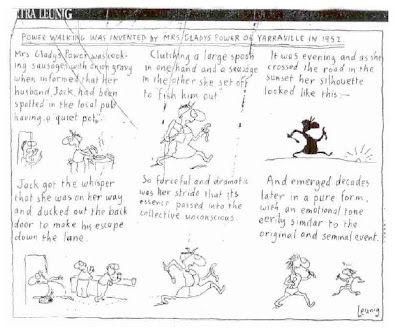 XTRA LEUNIG
POWER WALKING WAS INVENTED BY MRS. GLADYS POWER OF YARRAVILLE IN 1952.
Mrs Gladys Power was cook-
ing sausages with onion gravy
when informed that her
husband, Jack, had been
spotted in the local pub
having a quiet pot.
Clutching a large spoon
in one hand and a sausage
in the other she set off
to fish him out
It was evening and as she
crossed the road in the
sunset her silhouette
looked like this —
Jack got the whisper
that she was on her way
and ducked out the back
door to make his escape
down the lane.
So forceful and dramatic
was her stride that its
essence passed into the
collective unconscious.
And emerged decades
later in a pure form,
with an emotional tone
eerily similar to the
original and seminal event.
Leunig